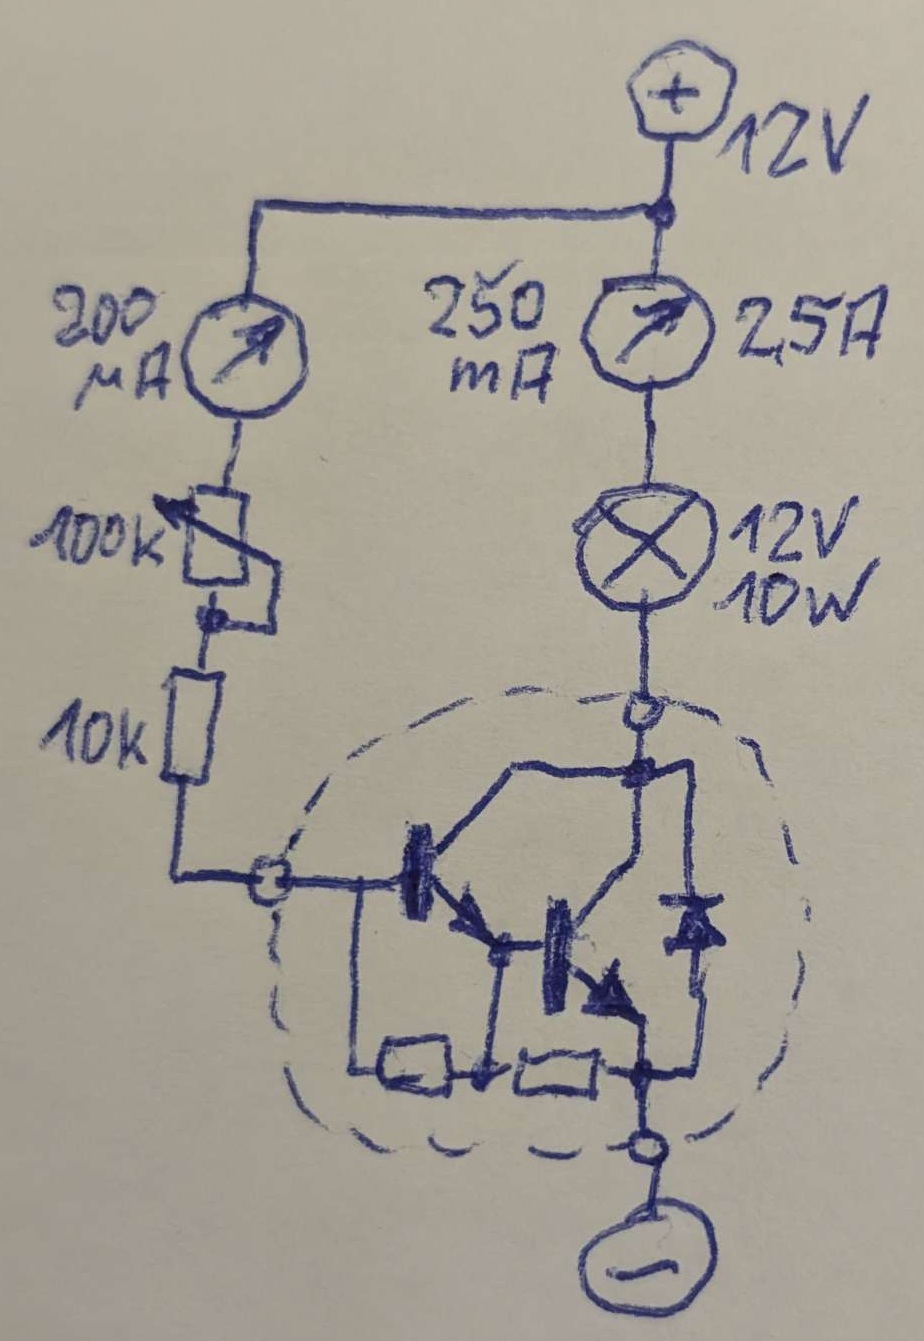 +
12V
200
µA
250
mA
2,5A
100k
12V
10W
10k
−